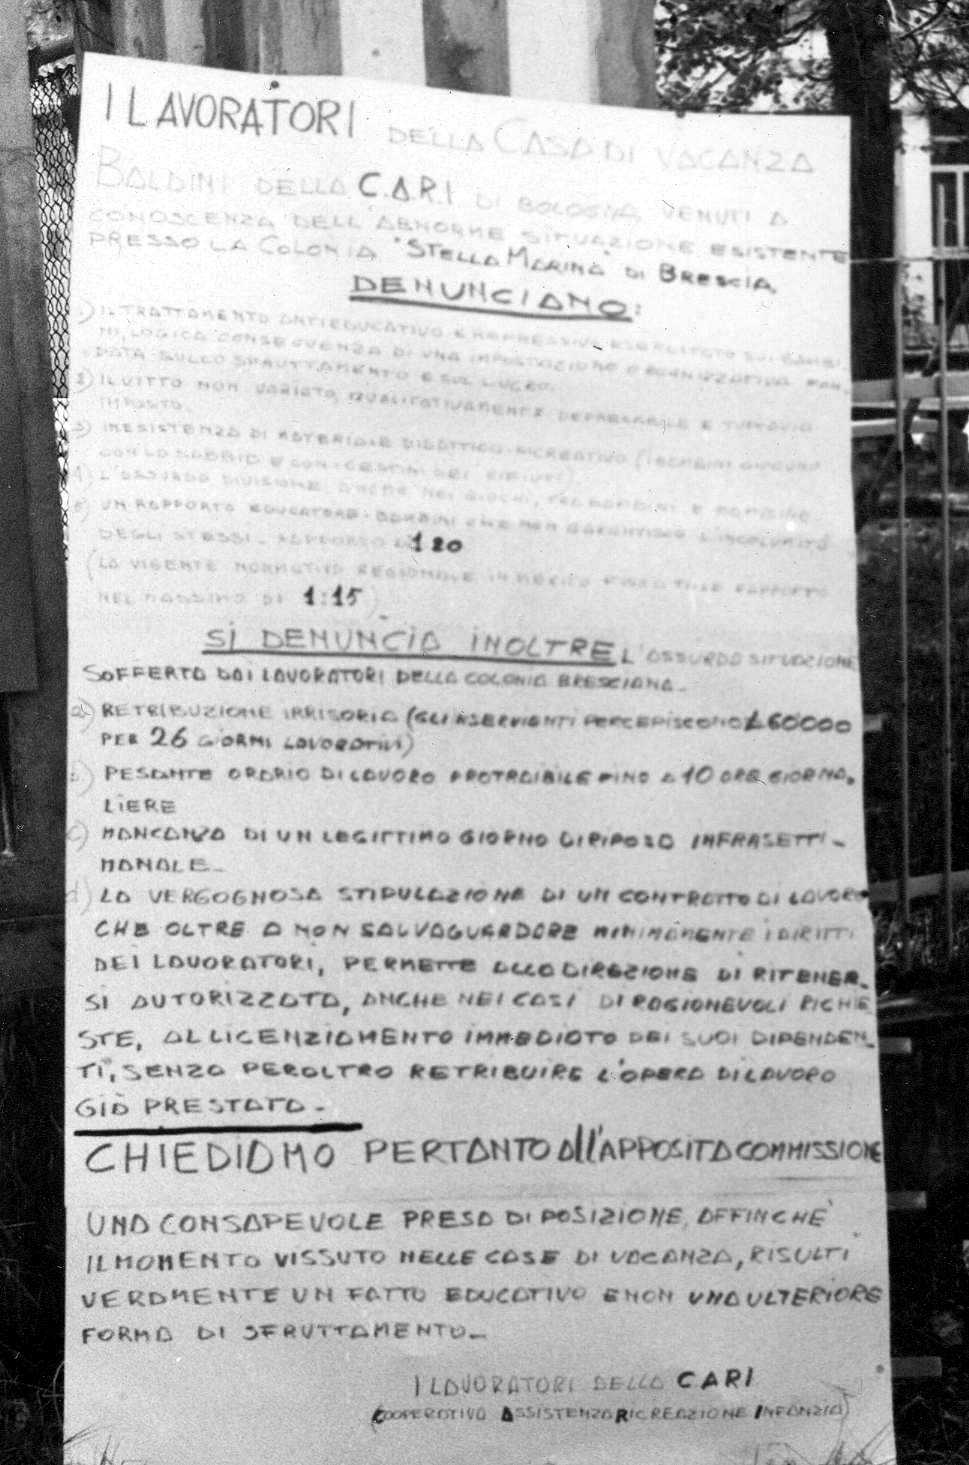 I LAVORATORI DELLA CASA DI VACANZA
BALDINI DELLA C.A.R.I DI BOLOGNA, VENUTI A
CONOSCENZA DELL'ABNORME SITUAZIONE ESISTENTE
PRESSO LA COLONIA "STELLA MARINA" DI BRESCIA,
DENUNCIANO:
1) IL TRATTAMENTO ANTIEDUCATIVO E REPRESSIVO ESERCITATO SUI BAMBI
NI, LOGICA CONSEGUENZA DI UNA IMPOSTAZIONE ORGANIZZATIVA FON
DATA SULLO SFRUTTAMENTO E SUL LUCRO.
2) IL VITTO NON VARIATO, QUALITATIVAMENTE DEPRECABILE E TUTTAVIA
IMPOSTO.
3) INESISTENZA DI MATERIALE DIDATTICO-RICREATIVO (I BAMBINI GIOCANO
CON LA SABBIA E CON I CESTINI DEI RIFIUTI).
4) L'ASSURDA DIVISIONE, ANCHE NEI GIOCHI, TRA BAMBINI E BAMBINE
5) UN RAPPORTO EDUCATORE-BAMBINI CHE NON GARANTISCE L'INCOLUMITÀ
DEGLI STESSI - RAPPORTO 1 20
(LA VIGENTE NORMATIVA REGIONALE IN MERITO FISSA TALE RAPPORTO
NEL MASSIMO DI 1:15)
SI DENUNCIA INOLTRE L'ASSURDA SITUAZIONE
SOFFERTA DAI LAVORATORI DELLA COLONIA BRESCIANA-
a) RETRIBUZIONE IRRISORIA (GLI INSERVIENTI PERCEPISCONO £60000
PER 26 GIORNI LAVORATIVI)
b) PESANTE ORARIO DI LAVORO PROTRAIBILE FINO A 10 ORE GIORNA-
LIERE
c) MANCANZA DI UN LEGITTIMO GIORNO DI RIPOSO INFRASETTI-
MANALE-
d) LA VERGOGNOSA STIPULAZIONE DI UN CONTRATTO DI LAVORO
CHE OLTRE A NON SALVAGUARDARE MINIMAMENTE I DIRITTI
DEI LAVORATORI, PERMETTE ALLA DIREZIONE DI RITENER-
SI AUTORIZZATA, ANCHE NEI CASI DI RAGIONEVOLI RICHIE
STE, AL LICENZIAMENTO IMMEDIATO DEI SUOI DIPENDEN-
TI, SENZA PERALTRO RETRIBUIRE L'OPERA DI LAVORO
GIÀ PRESTATA-
CHIEDIAMO PERTANTO all'APPOSITA COMMISSIONE
UNA CONSAPEVOLE PRESA DI POSIZIONE, AFFINCHÈ
IL MOMENTO VISSUTO NELLE CASE DI VACANZA, RISULTI
VERAMENTE UN FATTO EDUCATIVO E NON UNA ULTERIORE
FORMA DI SFRUTTAMENTO-
I LAVORATORI DELLA CARI
(COOPERATIVA ASSISTENZA RICREAZIONE INFANZIA)